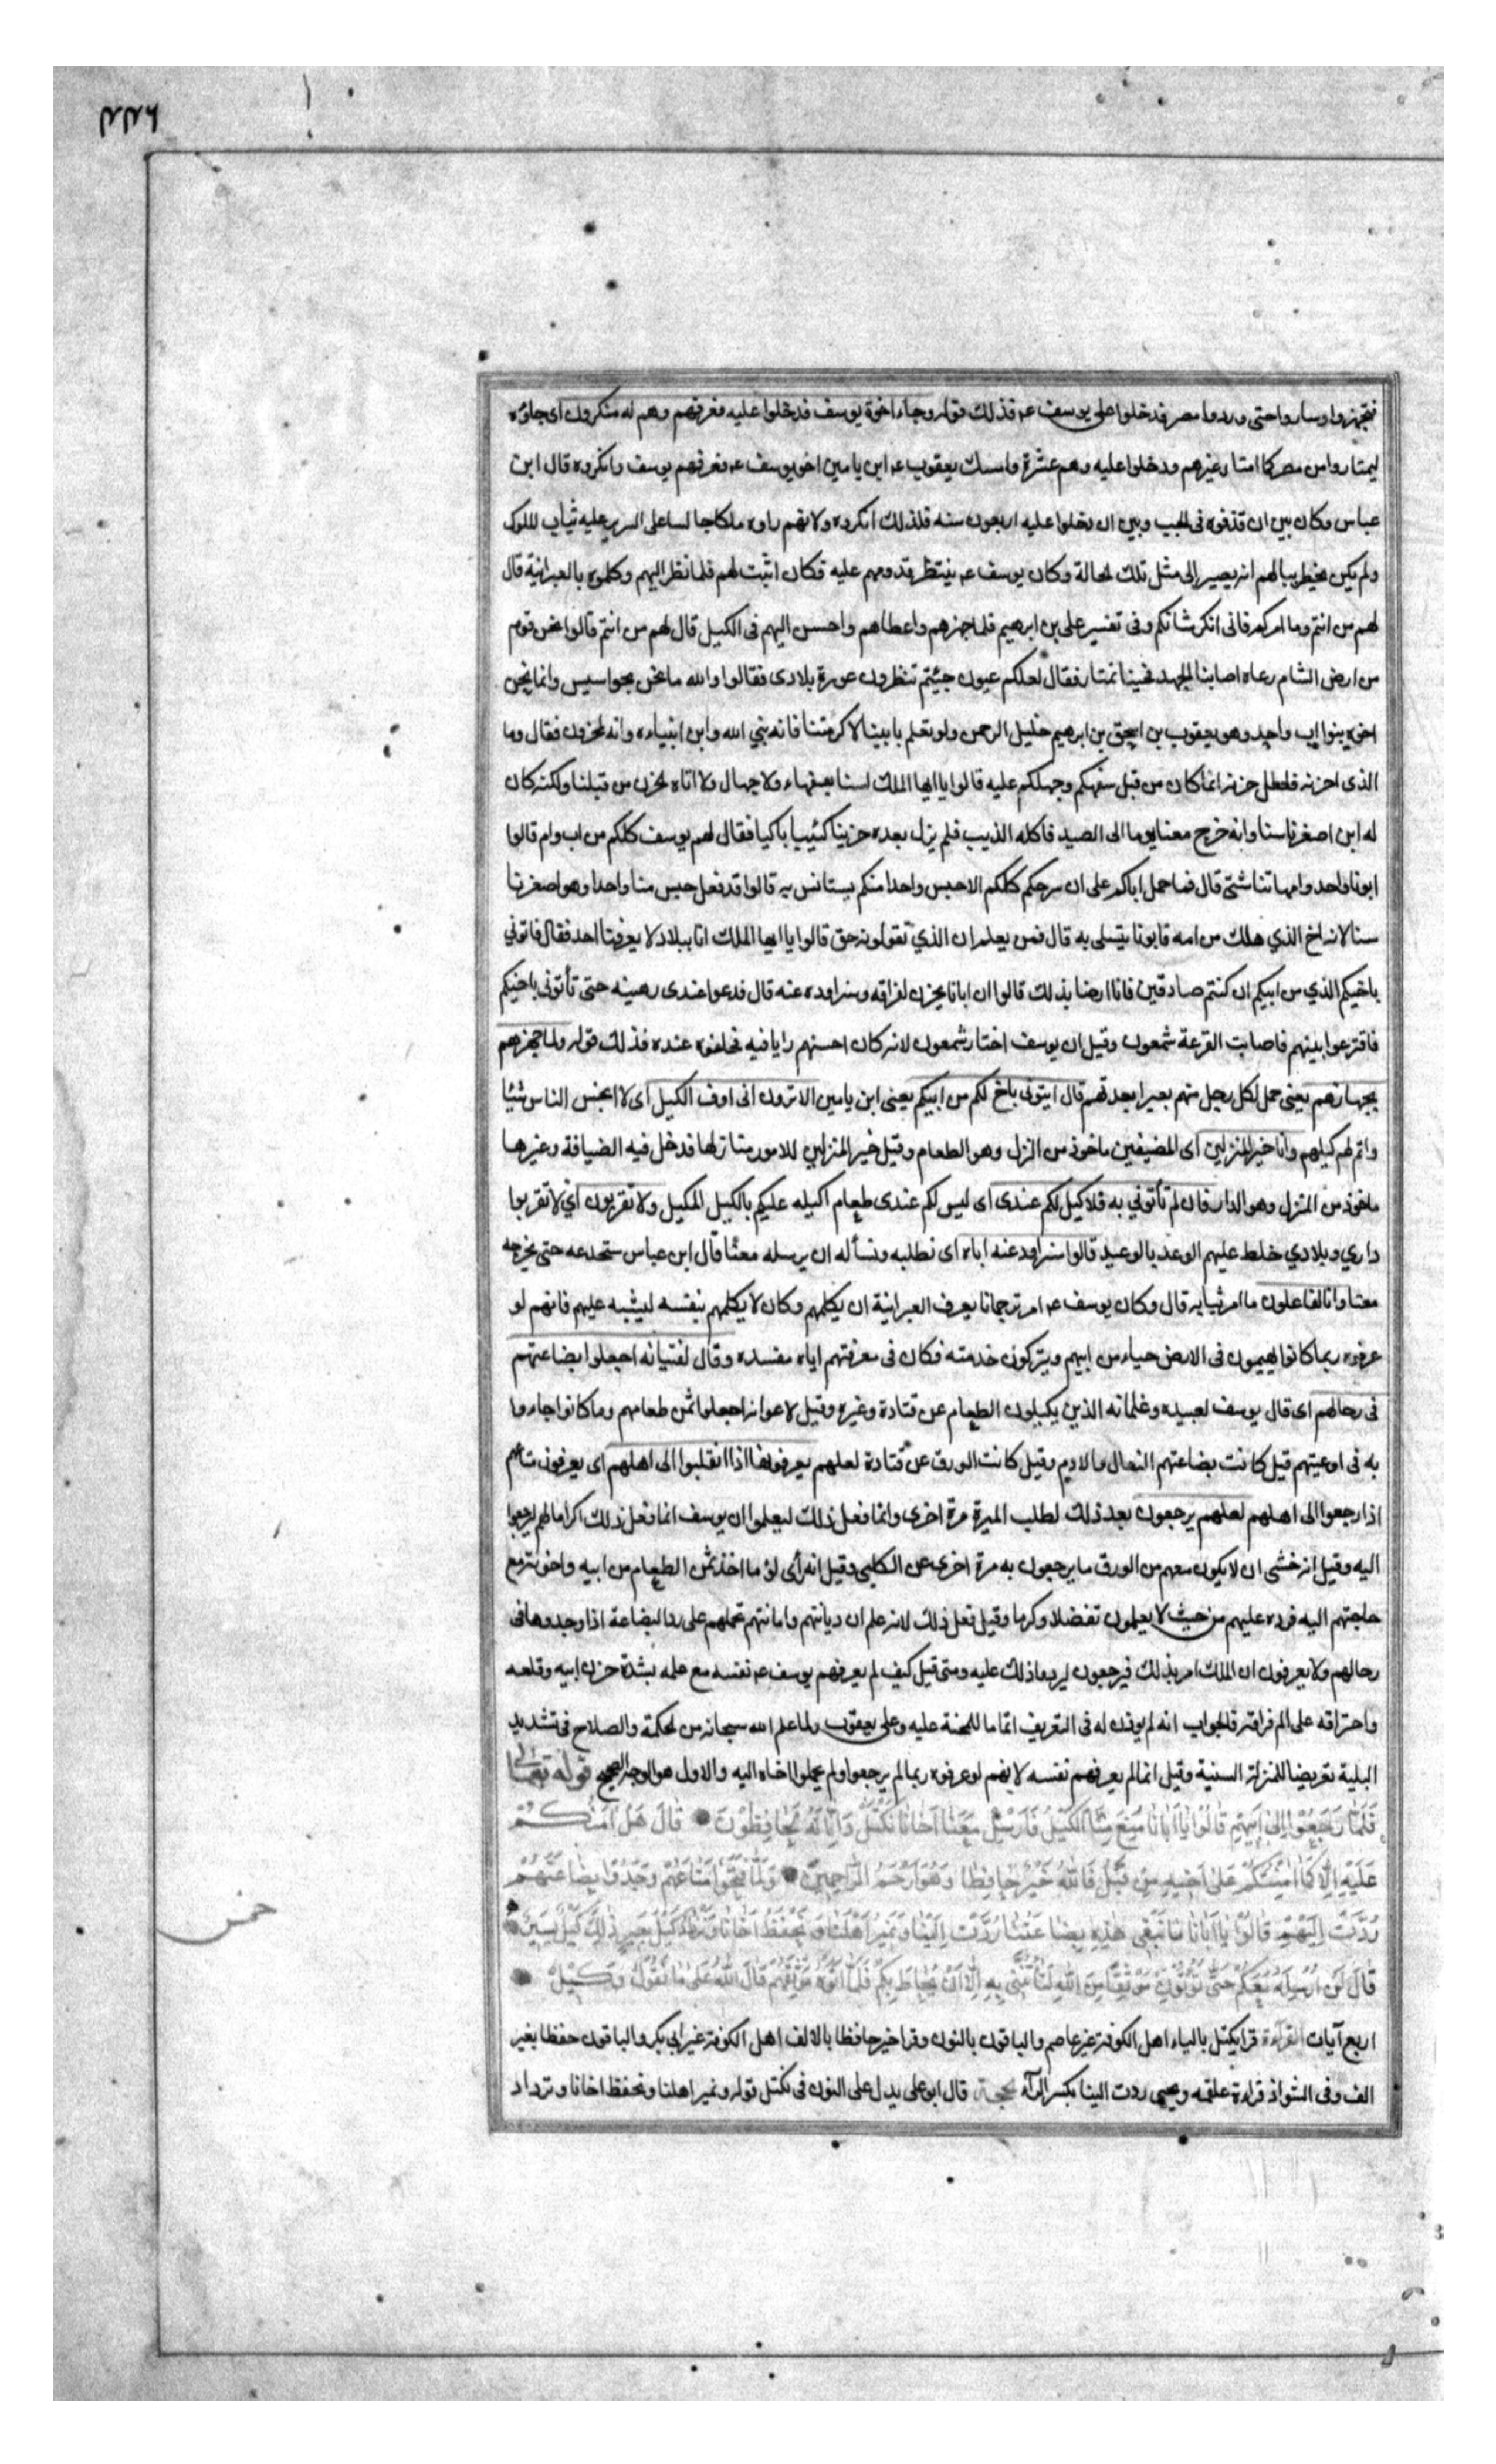 فتجهزوا وساروا حتى وردوا مصر فدخلوا على يوسف عم فذلك قوله وجاء اخوة يوسف فدخلوا عليه فعرفهم وهم له منكرون اى جاؤه
ليمتاروا من مصر كما امتار غيرهم ودخلوا عليه وهم عشرة وامسك يعقوب عم ابن يامين اخو يوسف عم فعرفهم يوسف وانكروه قال ابن
عباس وكان بين ان قذفوه فى الجب وبين ان دخلوا عليه اربعون سنه فلذلك انكروه ولانهم راوه ملكا جالسا على السرير عليه ثياب الملوك
ولم يكن يخطر ببالهم انه يصير الى مثل تلك الحالة وكان يوسف عم ينتظر قدومهم عليه فكان اثبت لهم فلما نظر اليهم وكلموه بالعبرانية قال
لهم من انتم وما امركم فانى انكر شانكم وفى تفسير على بن ابرهيم فلما جهزهم واعطاهم واحسن اليهم فى الكيل قال لهم من انتم قالوا نحن قوم
من ارض الشام رعاه اصابنا الجهد فجينا نمتار فقال لعلكم عيون جيئتم تنظرون عورة بلادى فقالوا والله ما نحن بجواسيس وانما نحن
اخوه بنوا اب واحد وهو يعقوب بن اسحق بن ابرهيم خليل الرحمن ولو تعلم بابينا لاكرمتنا فانه نبي الله وابن انبياءه وانه لمحزون فقال وما
الذى احزنه فلعل حزنه انما كان من قبل سفهكم وجهلكم عليه قالوا يا ايها الملك لسنا بسفهاء ولا جهال ولا اتاه الحزن من قبلنا ولكنه كان
له ابن اصغرنا سنا وانه خرج معنا يوما الى الصيد فاكله الذيب فلم يزل بعده حزينا كئيبا باكيا فقال لهم يوسف كلكم من اب وام قالوا
ابونا واحد وامهاتنا شتى قال فما حمل اباكم على ان سرحكم كلكم الا حبس واحدا منكم يستانس به قالوا قد فعل حبس منا واحدا وهو اصغرنا
سنا لانه اخ الذي هلك من امه فابونا يتسلى به قال فمن يعلم ان الذي تقولونه حق قالوا يا ايها الملك انا ببلاد لا يعرفنا احد فقال فاتوني
باخيكم الذي من ابيكم ان كنتم صادقين فانا ارضا بذلك قالوا ان ابانا يحزن لفراقه وسنراوده عنه قال فدعوا عندى رهينه حتى تأتونى باخيكم
فاقترعوا بينهم فاصابت القرعة شمعون وقيل ان يوسف اختار شمعون لانه كان احسنهم رايا فيه فخلفوه عنده فذلك قوله ولما جهزهم
بجهازهم يعنى حمل لكل رجل منهم بعيرا بعدتهم قال ايتونى باخ لكم من ابيكم يعنى ابن يامين الا ترون انى اوف الكيل اى لا ابخس الناس شيئا
واتم لهم كيلهم وانا خير المنزلين اى المضيفين ماخوذ من النزل وهو الطعام وقيل خير المنزلين للامور منازلها فدخل فيه الضيافة وغيرها
ماخوذ من المنزل وهو الدار فان لم تأتوني به فلا كيل لكم عندى اى ليس لكم عندى طعام اكيله عليكم بالكيل المكيل ولا تقربون اي لا تقربوا
داري وبلادي خلط عليهم الوعد بالوعيد قالوا سنراود عنه اباه اى نطلبه ونسأله ان يرسله معنا قال ابن عباس ستخدعه حتى يخرجه
معنا وانا لفاعلون ما امرتنا به قال وكان يوسف عم امر ترجمانا يعرف العبرانية ان يكلمهم وكان لا يكلمهم بنفسه ليشبه عليهم فانهم لو
عرفوه ربما كانوا يهيمون فى الارض حياء من ابيهم ويتركون خدمته فكان فى معرفتهم اياه مفسده وقال لفتيانه اجعلوا بضاعتهم
فى رحالهم اى قال يوسف لعبيده وغلمانه الذين يكيلون الطعام عن قتادة وغيره وقيل لاعوانه اجعلوا ثمن طعامهم وما كانوا جاءوا
به فى اوعيتهم قيل كانت بضاعتهم النعال والادم وقيل كانت الورق عن قتادة لعلهم يعرفونها اذا انقلبوا الى اهلهم اى يعرفون متاعهم
اذا رجعوا الى اهلهم لعلهم يرجعون بعد ذلك لطلب الميرة مرة اخرى وانما فعل ذلك ليعلموا ان يوسف انما فعل ذلك اكراما لهم ليرجعوا
اليه وقيل انه خشى ان لا يكون معهم من الورق ما يرجعون به مرة اخرى عن الكلبي وقيل انه رأى لؤما اخذ ثمن الطعام من ابيه واخوته مع
حاجتهم اليه فرده عليهم من حيث لا يعلمون تفضلا وكرما وقيل فعل ذلك لانه علم ان ديانتهم وامانتهم تحملهم على رد البضاعة اذا وجدوها فى
رحالهم ولا يعرفون ان الملك امر بذلك فيرجعون ليردها ذلك عليه ومتى قيل كيف لم يعرفهم يوسف عم نفسه مع علمه بشدة حزن ابيه وقلقه
واحتراقه على الم فراقه فالجواب انه لم يوذن له فى التعريف اتماما للمحنة عليه وعلى يعقوب ولما علم الله سبحانه من الحكمة والصلاح فى تشديد
البلية تعريضا للمنزلة السنية وقيل انما لم يعرفهم نفسه لانهم لو عرفوه ربما لم يرجعوا ولم يحملوا اخاه اليه والاول هو الوجه الصحيح قوله تعالى
فَلَمَّا رَجَعُوا اِلى اَبِيهِمْ قَالُوا يَا اَبَانَا مُنِعَ مِنَّا الْكَيْلُ فَاَرْسِلْ مَعَنَا اَخَانَا نَكْتَلْ وَاِنَّا لَهُ لَحَافِظُونَ قَالَ هَلْ آمَنُكُمْ
عَلَيْهِ اِلَّا كَمَا اَمِنْتُكُمْ عَلى اَخِيهِ مِنْ قَبْلُ فَاللهُ خَيْرٌ حَافِظًا وَهُوَ اَرْحَمُ الرَّاحِمِينَ وَلَمَّا فَتَحُوا مَتَاعَهُمْ وَجَدُوا بِضَاعَتَهُمْ
رُدَّتْ اِلَيْهِمْ قَالُوا يَا اَبَانَا مَا نَبْغِى هٰذِهِ بِضَاعَتُنَا رُدَّتْ اِلَيْنَا وَنَمِيرُ اَهْلَنَا وَنَحْفَظُ اَخَانَا وَنَزْدَادُ كَيْلَ بَعِيرٍ ذٰلِكَ كَيْلٌ يَسِيرٌ
قَالَ لَنْ اُرْسِلَهُ مَعَكُمْ حَتّى تُؤْتُونِ مَوْثِقًا مِنَ اللهِ لَتَأْتُنَّنِى بِهِ اِلَّا اَنْ يُحَاطَ بِكُمْ فَلَمَّا آتَوْهُ مَوْثِقَهُمْ قَالَ اللهُ عَلى مَا نَقُولُ وَكِيلٌ
اربع آيات القرآءة قرا يكتل بالياء اهل الكوفة غير عاصم والباقون بالنون وقرا خير حافظا بالالف اهل الكوفة غير ابى بكر والباقون حفظا بغير
الف وفى الشواذ قراءة علقمه ويحيى ردت الينا بكسر الرآء الحجة قال ابو على يدل على النون فى نكتل قوله ونمير اهلنا ونحفظ اخانا ونزداد